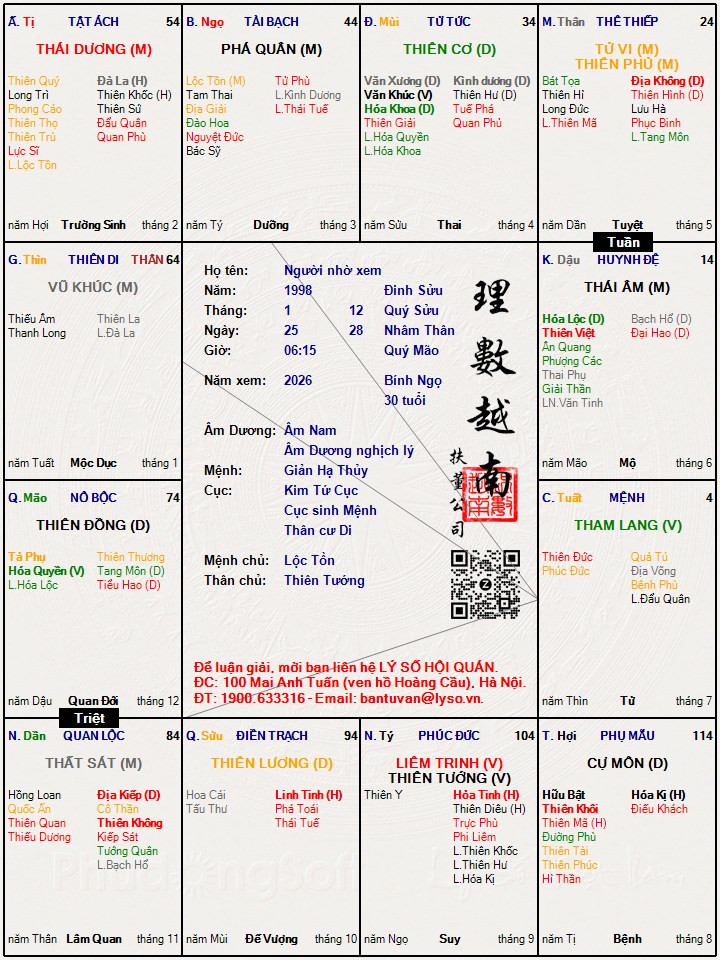 Ấ. Tị TẬT ÁCH 54
THÁI DƯƠNG (M)
Thiên Quý Đà La (H)
Long Trì Thiên Khốc (H)
Phong Cáo Thiên Sứ
Thiên Thọ Đẩu Quân
Thiên Trù Quan Phù
Lực Sĩ
L.Lộc Tồn
năm Hợi Trường Sinh tháng 2
B. Ngọ TÀI BẠCH 44
PHÁ QUÂN (M)
Lộc Tồn (M) Tử Phù
Tam Thai L.Kình Dương
Địa Giải L.Thái Tuế
Đào Hoa
Nguyệt Đức
Bác Sỹ
năm Tý Dưỡng tháng 3
Đ. Mùi TỬ TỨC 34
THIÊN CƠ (D)
Văn Xương (D) Kình dương (D)
Văn Khúc (V) Thiên Hư (D)
Hóa Khoa (D) Tuế Phá
Thiên Giải Quan Phủ
L.Hóa Quyền
L.Hóa Khoa
năm Sửu Thai tháng 4
M. Thân THÊ THIẾP 24
TỬ VI (M)
THIÊN PHỦ (M)
Bát Tọa Địa Không (D)
Thiên Hỉ Thiên Hình (D)
Long Đức Lưu Hà
L.Thiên Mã Phục Binh
L.Tang Môn
năm Dần Tuyệt tháng 5
Tuần
G. Thìn THIÊN DI THÂN 64
VŨ KHÚC (M)
Thiếu Âm Thiên La
Thanh Long L.Đà La
năm Tuất Mộc Dục tháng 1
Họ tên: Người nhờ xem
Năm: 1998 Đinh Sửu
Tháng: 1 12 Quý Sửu
Ngày: 25 28 Nhâm Thân
Giờ: 06:15 Quý Mão
Năm xem: 2026 Bính Ngọ
30 tuổi
Âm Dương: Âm Nam
Âm Dương nghịch lý
Mệnh: Giản Hạ Thủy
Cục: Kim Tứ Cục
Cục sinh Mệnh
Thân cư Di
Mệnh chủ: Lộc Tồn
Thân chủ: Thiên Tướng
理數越南
扶董公司
Để luận giải, mời bạn liên hệ LÝ SỐ HỘI QUÁN.
ĐC: 100 Mai Anh Tuấn (ven hồ Hoàng Cầu), Hà Nội.
ĐT: 1900.633316 - Email: bantuvan@lyso.vn.
K. Dậu HUYNH ĐỆ 14
THÁI ÂM (M)
Hóa Lộc (D) Bạch Hổ (D)
Thiên Việt Đại Hao (D)
Ân Quang
Phượng Các
Thai Phụ
Giải Thần
LN.Văn Tinh
năm Mão Mộ tháng 6
Q. Mão NÔ BỘC 74
THIÊN ĐỒNG (D)
Tả Phụ Thiên Thương
Hóa Quyền (V) Tang Môn (D)
L.Hóa Lộc Tiểu Hao (D)
năm Dậu Quan Đới tháng 12
C. Tuất MỆNH 4
THAM LANG (V)
Thiên Đức Quả Tú
Phúc Đức Địa Võng
Bệnh Phù
L.Đẩu Quân
năm Thìn Tử tháng 7
Triệt
N. Dần QUAN LỘC 84
THẤT SÁT (M)
Hồng Loan Địa Kiếp (D)
Quốc Ấn Cô Thần
Thiên Quan Thiên Không
Thiếu Dương Kiếp Sát
Tướng Quân
L.Bạch Hổ
năm Thân Lâm Quan tháng 11
Q. Sửu ĐIỀN TRẠCH 94
THIÊN LƯƠNG (D)
Hoa Cái Linh Tinh (H)
Tấu Thư Phá Toái
Thái Tuế
năm Mùi Đế Vượng tháng 10
N. Tý PHÚC ĐỨC 104
LIÊM TRINH (V)
THIÊN TƯỚNG (V)
Thiên Y Hỏa Tinh (H)
Thiên Diêu (H)
Trực Phù
Phi Liêm
L.Thiên Khốc
L.Thiên Hư
L.Hóa Kị
năm Ngọ Suy tháng 9
T. Hợi PHỤ MẪU 114
CỰ MÔN (D)
Hữu Bật Hóa Kị (H)
Thiên Khôi Điếu Khách
Thiên Mã (H)
Đường Phù
Thiên Tài
Thiên Phúc
Hỉ Thần
năm Tị Bệnh tháng 8